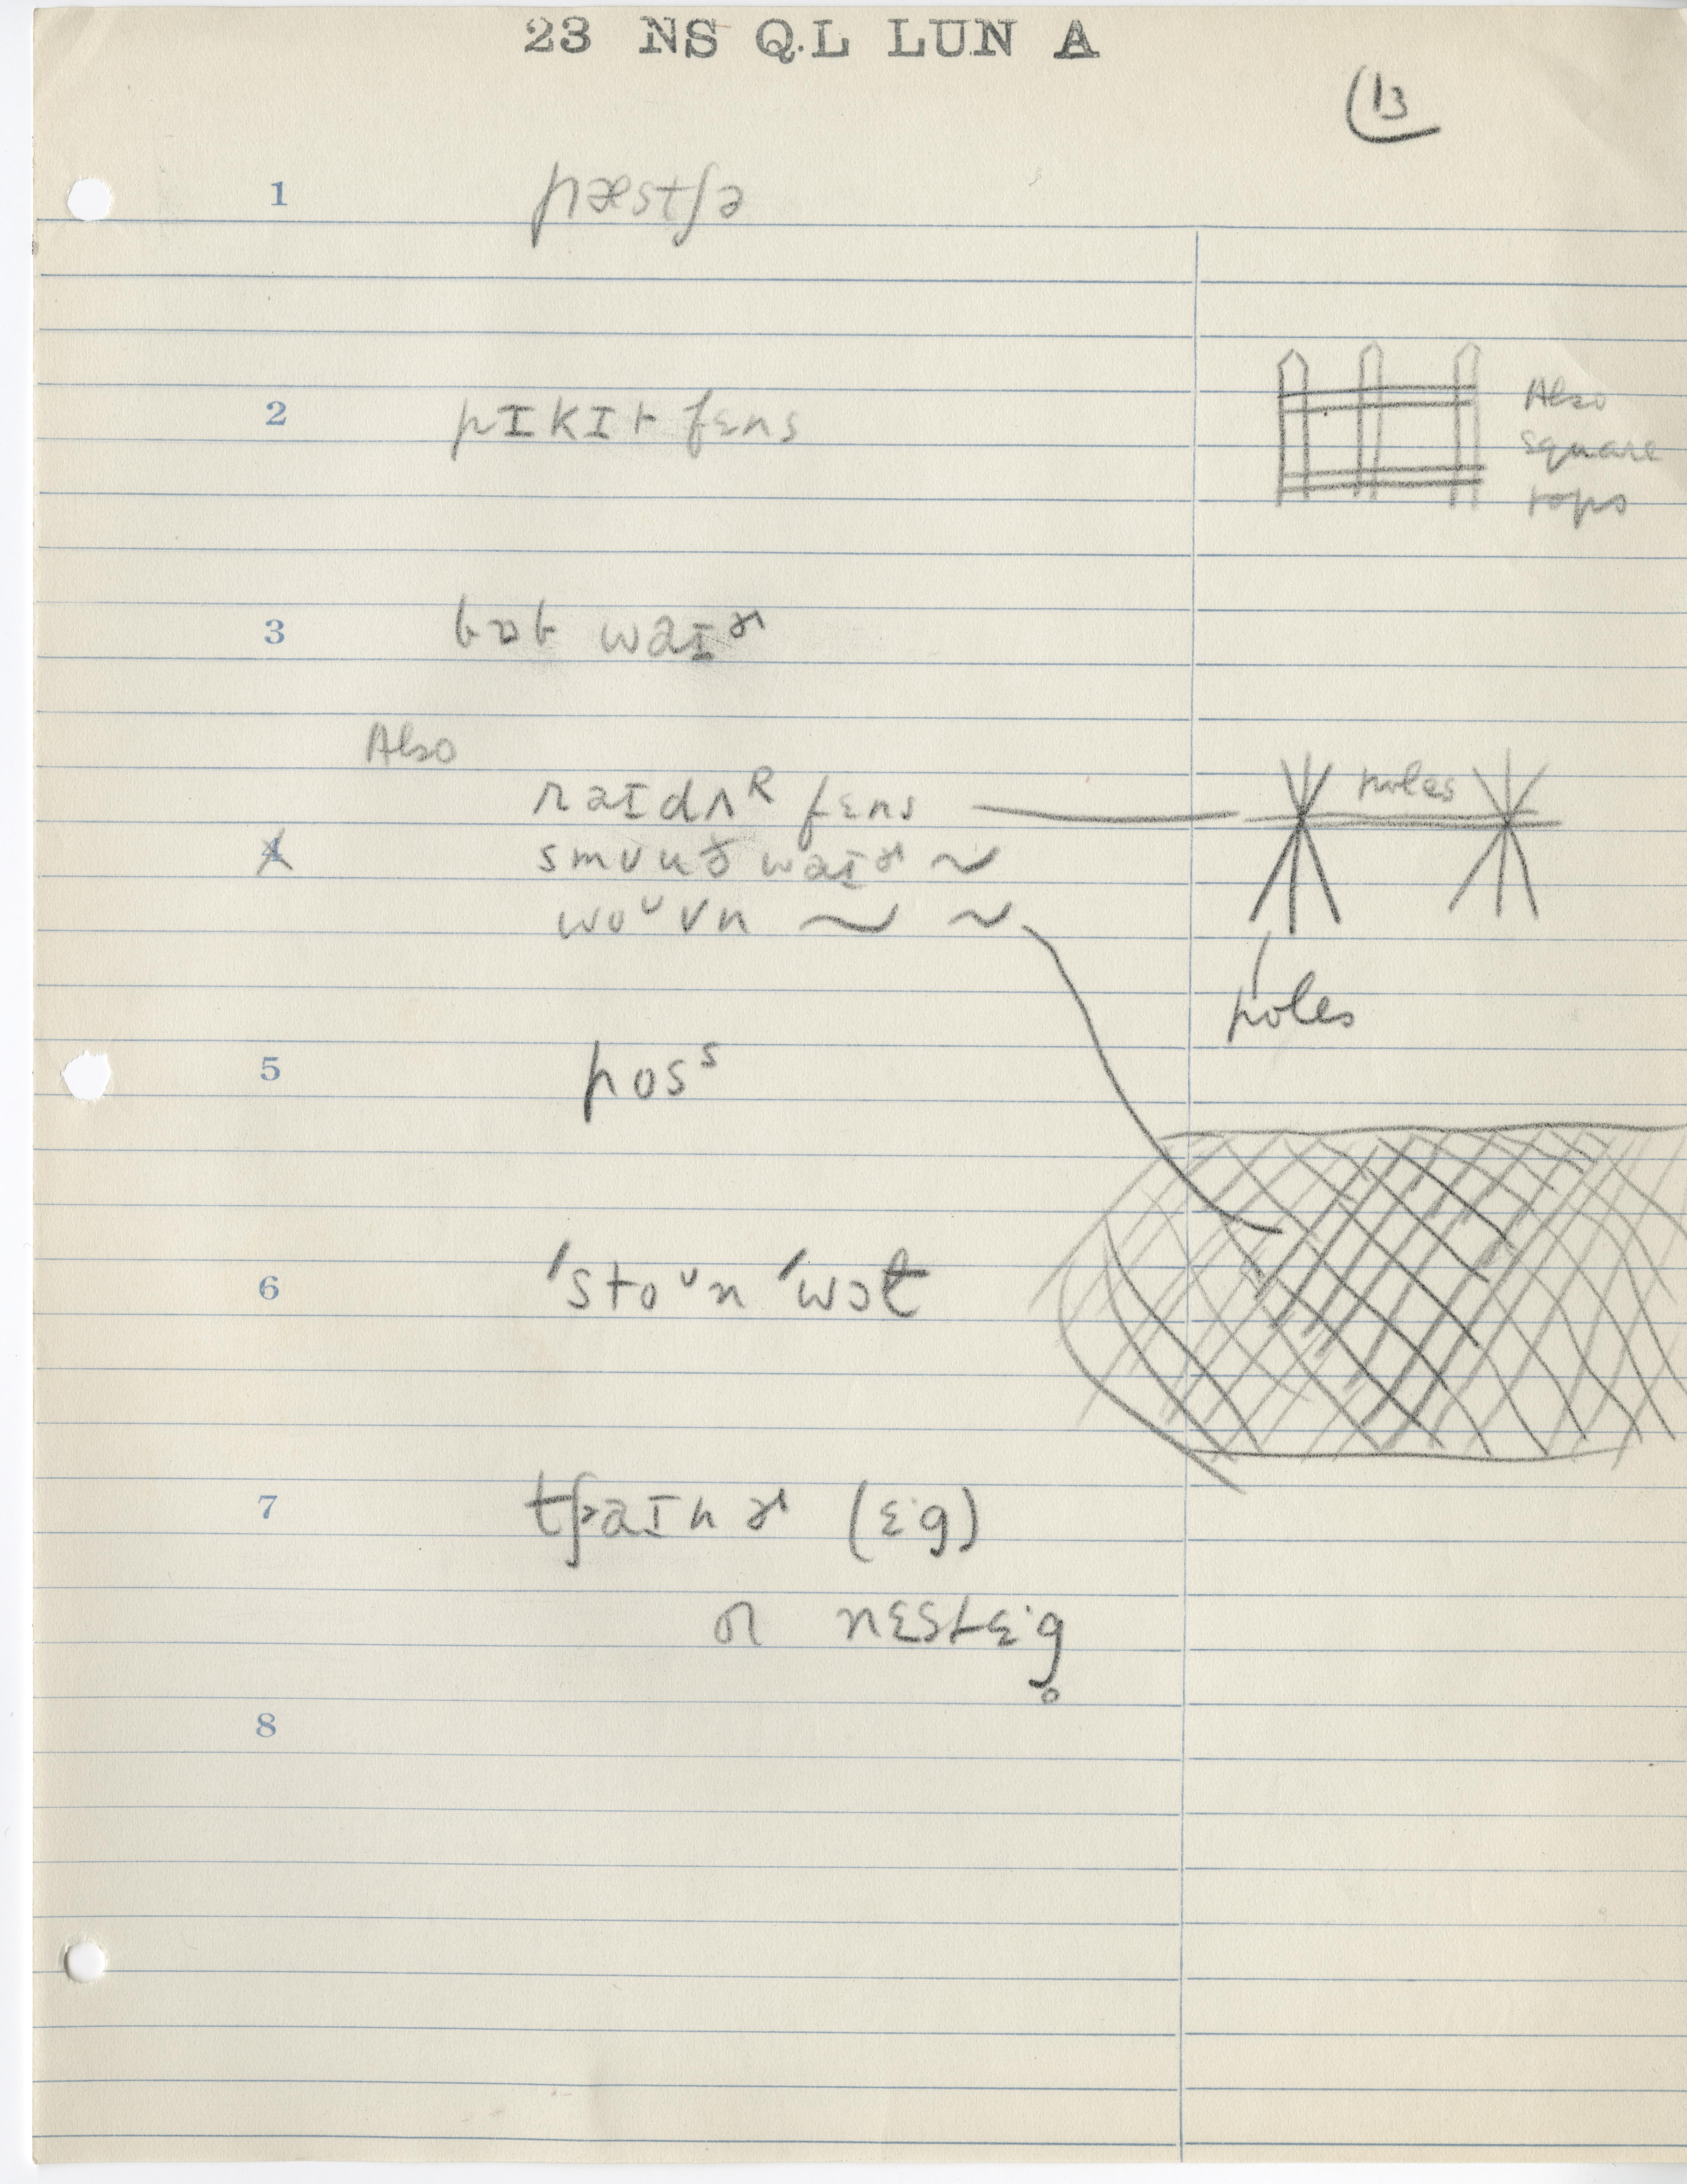 23 NS Q.L LUN A
13
1 pæstʃə
2 pɪkɪt fɛns
Also
square
tops
3 bɒb waɪɚ
Also
raɪdʌᴿ fɛns
poles
4 smuuð waɪɚ ~
woᵘvn ~ ~
poles
5 posˢ
6 ˈstoᵘn ˈwɔɫ
7 tʃaɪnɚ (ɛˑg)
or nɛstɛˑg̥
8